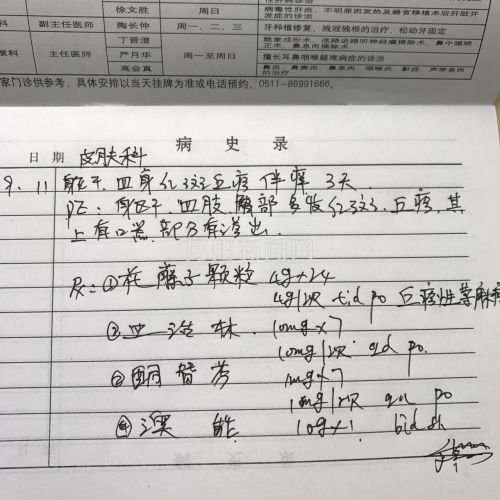 徐文胜 周日 病毒性肝炎，不明原因发热及器官移植术后肝脏并发症的诊治
副主任医师 陶长仲 周一、二、三 牙种植修复、残冠残根的治疗、松动牙固定
丁晋澄
喉科 主任医师 严月华 周一至周日 擅长耳鼻咽喉疑难病症的诊治
高会真 鼻炎、鼻窦炎、鼻息肉、咽喉炎、鼾症、声带息肉的治疗
家门诊供参考，具体安排以当天挂牌为准或电话预约，0511-86991666。
病 史 录
日 期 皮肤科
9.11 躯干、四身红斑丘疹伴痒3天.
PE: 躯干、四肢、臀部多发红斑、丘疹，其
上有口黑，部分有渗出.
Rx: ① 花 离子颗粒 4g×24
4g/次 tid po 丘疹性荨麻疹
② 10mg×7
10mg/次 qd po.
③ 酮替芬 1mg×7
1mg/次 qn po
④ 澳 能 10g×1 bid